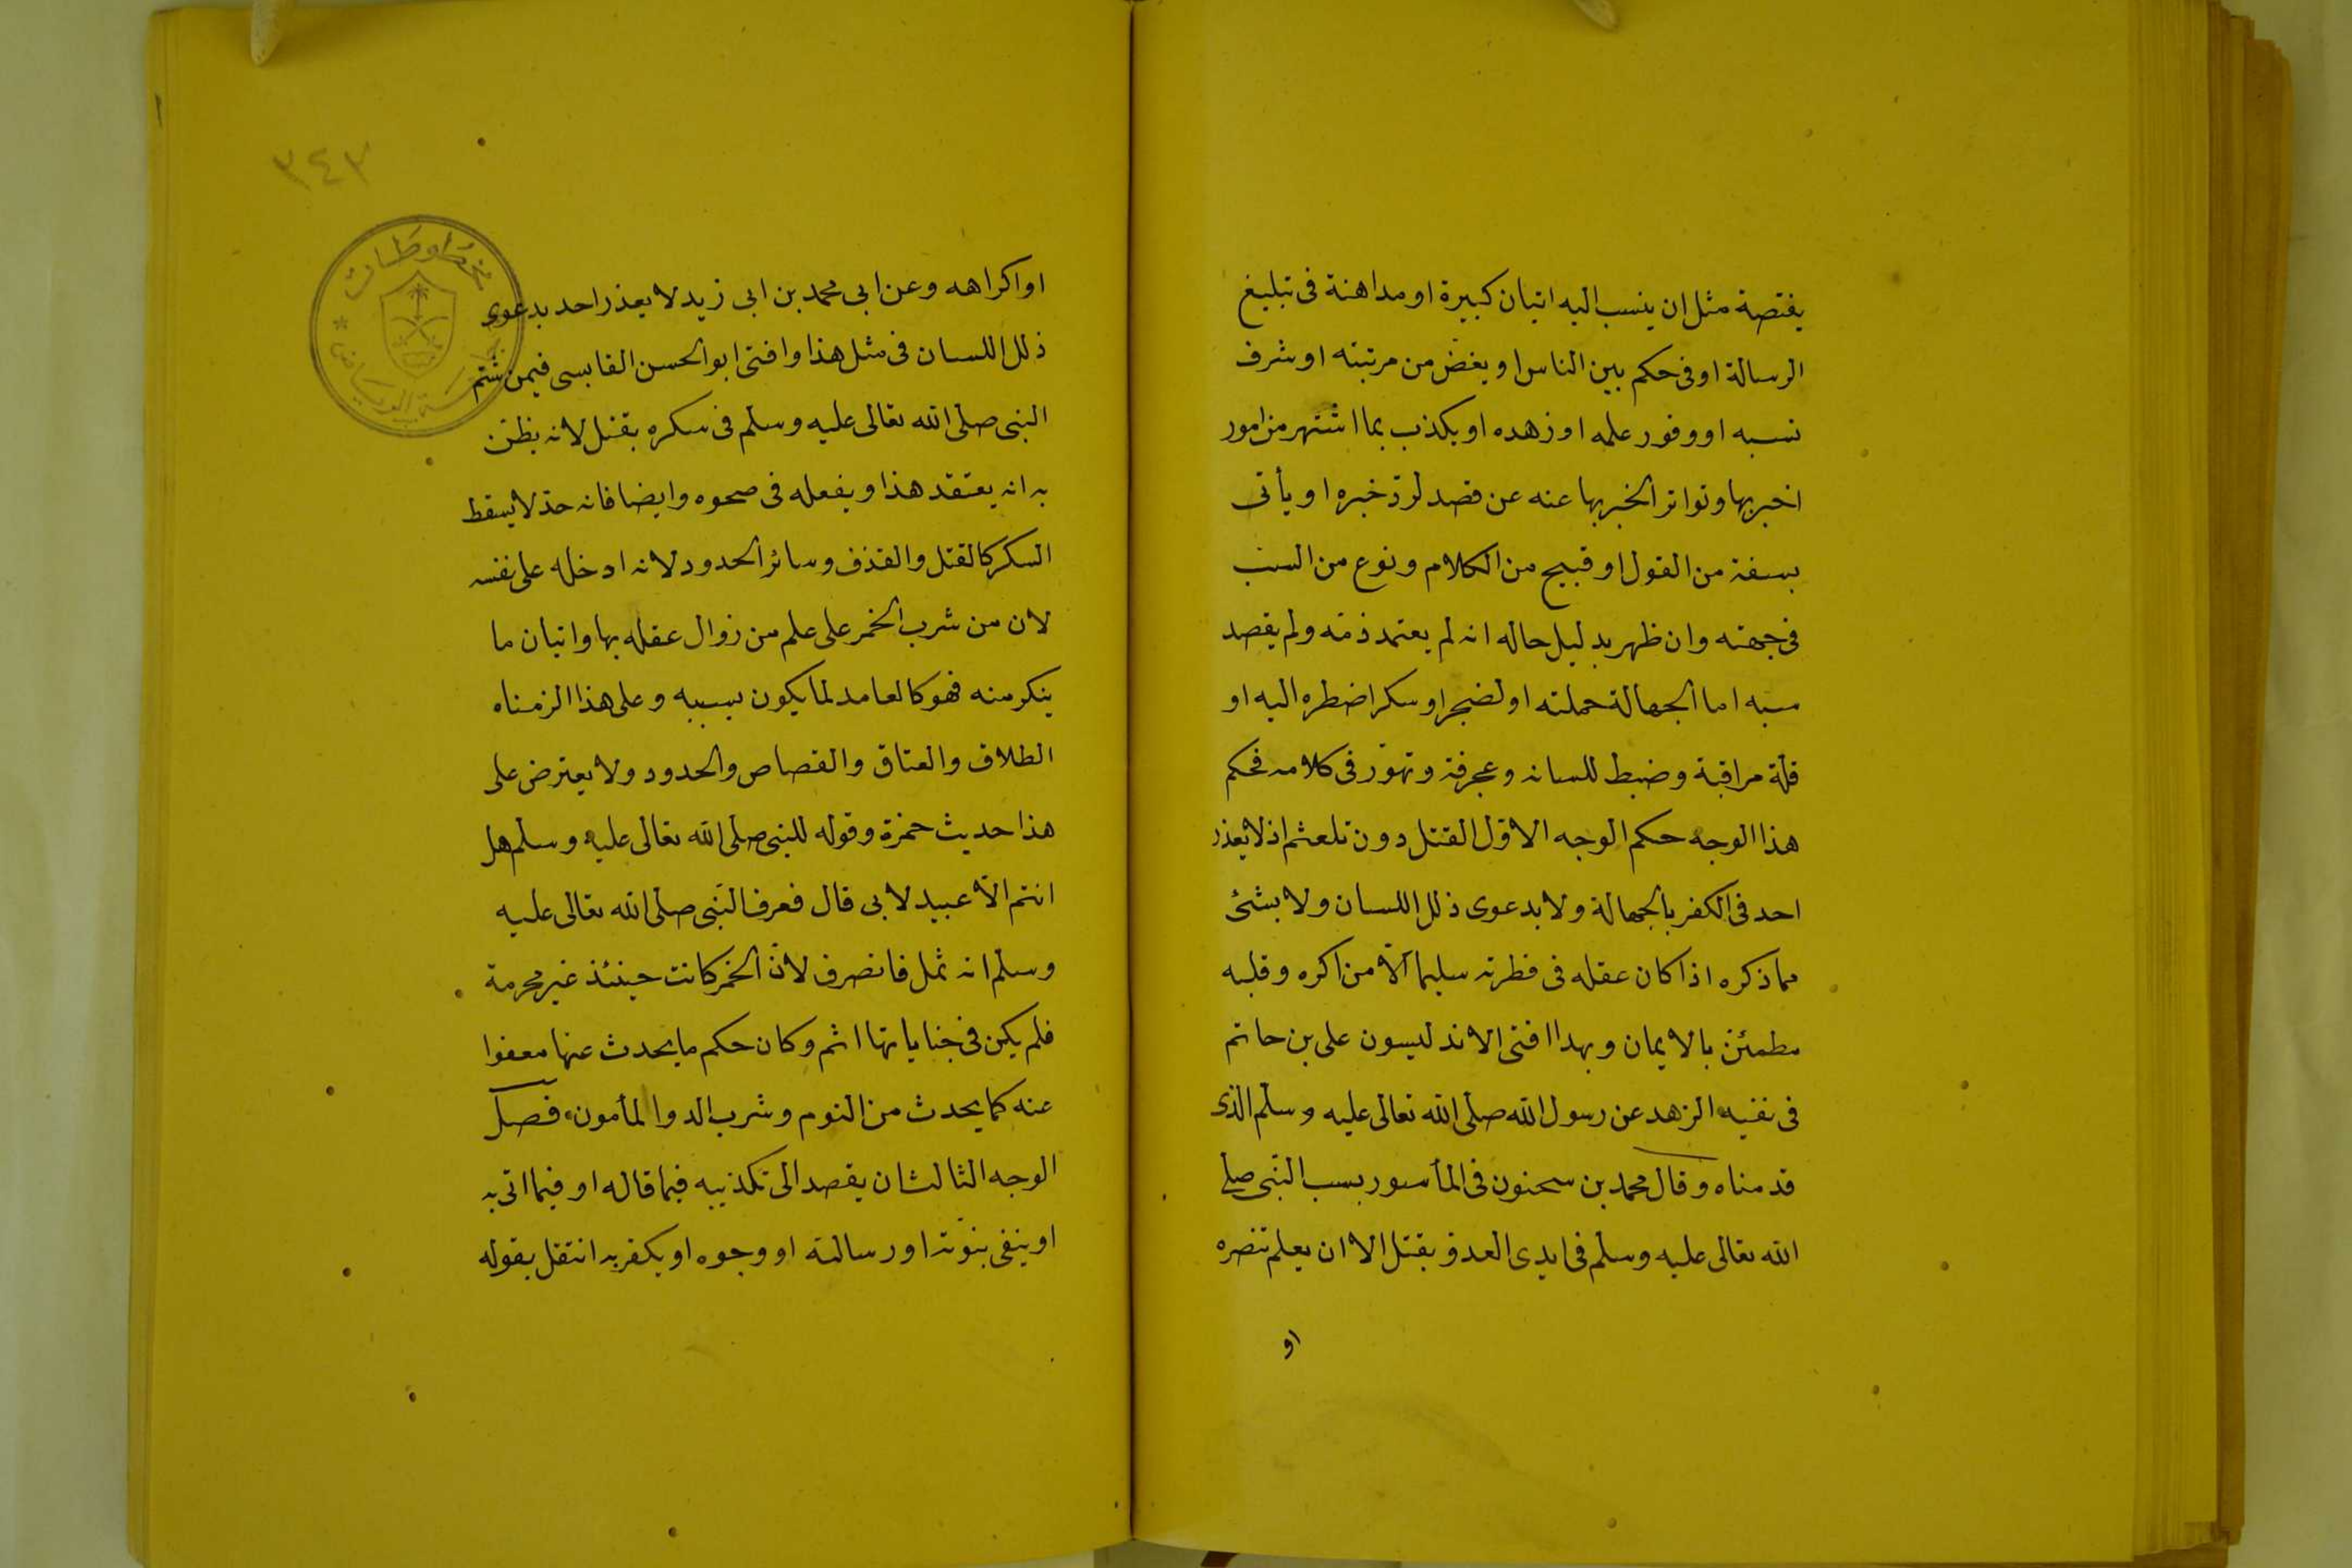 يفتصة مثل ان ينسب اليه اتيان كبيرة او مداهنة فى تبليغ
الرسالة او فى حكم بين الناس او يغض من مرتبته او شرف
نسبه او وفور علمه او زهده او يكذب بما اشتهر من امور
اخبر بها وتواتر الخبر بها عنه عن قصد لردّ خبره او يأتى
بسفة من القول او قبيح من الكلام ونوع من السب
فى جهته وان ظهر بدليل حاله انه لم يعتمد ذمّه ولم يقصد
سبه اما الجهالة حملته او لضجر او سكر اضطره اليه او
قلة مراقبة وضبط للسانه وعجرفة وتهوّر فى كلامه فحكم
هذا الوجه حكم الوجه الاوّل القتل دون تلعثم اذ لا يعذر
احد فى الكفر بالجهالة ولا بدعوى ذلل اللسان ولا بشئ
مما ذكره اذا كان عقله فى فطرته سليما الّا من اكره وقلبه
مطمئن بالايمان وبهذا افتى الاندليسون على بن حاتم
فى نفيه الزهد عن رسول الله صلى الله تعالى عليه وسلم الذى
قدمناه وقال محمد بن سحنون فى المأسور بسب النّبى صلى
الله تعالى عليه وسلم فى ايدى العدوّ يقتل الا ان يعلم تنصره
او
٣٤٣
مخطوطات
الرياض
او اكراهه وعن ابى محمد بن ابى زيد لا يعذر احد بدعوى
ذلل اللسان فى مثل هذا وافتى ابو الحسن القابسى فيمن شتم
النبى صلى الله تعالى عليه وسلم فى سكره يقتل لانه يظنّ
به انه يعتقد هذا ويفعله فى صحوه وايضا فانه حدّ لا يسقط
السكر كالقتل والقذف وسائر الحدود لانه ادخله على نفسه
لان من شرب الخمر على علم من زوال عقله بها واتيان ما
ينكر منه فهو كالعامد لما يكون بسببه وعلى هذا الزمناه
الطلاق والعتاق والقصاص والحدود ولا يعترض على
هذا حديث حمزة وقوله للنبى صلى الله تعالى عليه وسلم هل
انتم الّا عبيد لابى قال فعرف النّبى صلى الله تعالى عليه
وسلم انه ثمل فانصرف لانّ الخمر كانت حينئذ غير محرمة
فلم يكن فى جناياتها اثم وكان حكم ما يحدث عنها معفوا
عنه كما يحدث من النوم وشرب الدوا المأمون، فصل
الوجه الثالث ان يقصد الى تكذيبه فيما قاله او فيما اتى به
او ينفى بنوّته او رسالته او وجوه او يكفر به انتقل بقوله